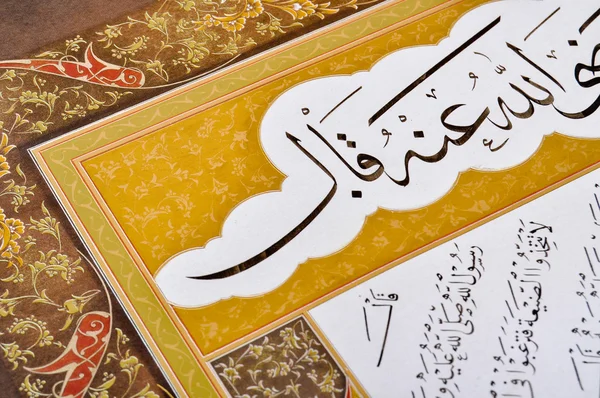 الله عنه قال
قال
رسول الله صلى الله عليه
لا تتخذوا الضيعة فترغبوا في